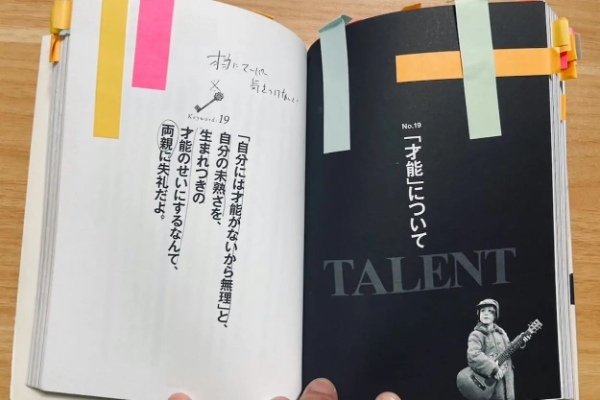 No.19
「才能」について
TALENT
Keyword: 19
「自分には才能がないから無理」と、
自分の未熟さを、
生まれつきの
才能のせいにするなんて、
両親に失礼だよ。